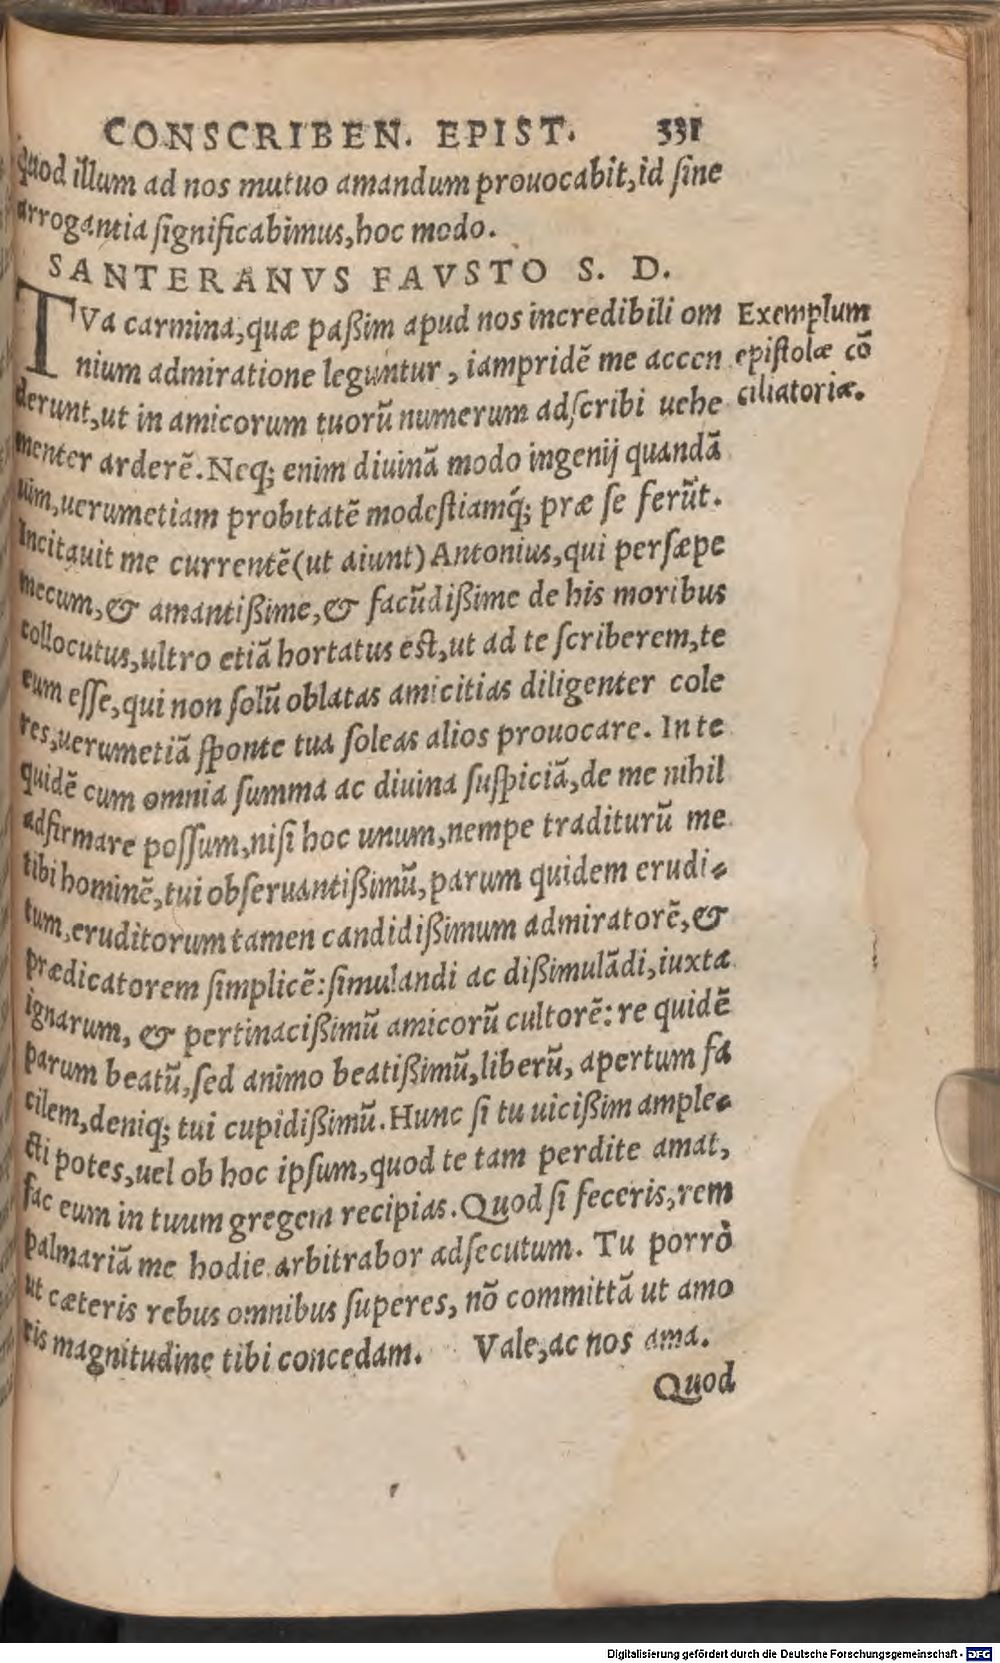 CONSCRIBEN. EPIST. 331
quod illum ad nos mutuo amandum prouocabit, id ſine
arrogantia ſignificabimus, hoc modo.
SANTERANVS FAVSTO S. D.
TVa carmina, quæ paßim apud nos incredibili om
nium admiratione leguntur, iampridē me accen
derunt, ut in amicorum tuorū numerum adſcribi uehe
menter arderē. Neq; enim diuinā modo ingenij quandā
uim, uerumetiam probitatē modeſtiamq́; præ ſe ferūt.
Incitauit me currentē (ut aiunt) Antonius, qui perſæpe
mecum, & amantißime, & facūdißime de his moribus
collocutus, ultro etiā hortatus eſt, ut ad te ſcriberem, te
eum eſſe, qui non ſolū oblatas amicitias diligenter cole
res, uerumetiā ſponte tua ſoleas alios prouocare. In te
quidē cum omnia ſumma ac diuina ſuſpiciā, de me nihil
adfirmare poſſum, niſi hoc unum, nempe traditurū me
tibi hominē, tui obſeruantißimū, parum quidem erudi-
tum, eruditorum tamen candidißimum admiratorē, &
prædicatorem ſimplicē: ſimulandi ac dißimulādi, iuxta
ignarum, & pertinacißimū amicorū cultorē: re quidē
parum beatū, ſed animo beatißimū, liberū, apertum fa
cilem, deniq; tui cupidißimū. Hunc ſi tu uicißim ample-
cti potes, uel ob hoc ipſum, quod te tam perdite amat,
fac eum in tuum gregem recipias. Quod ſi feceris, rem
palmariā me hodie arbitrabor adſecutum. Tu porrò
ut cæteris rebus omnibus ſuperes, nō committā ut amo
ris magnitudine tibi concedam. Vale, ac nos ama.
Quod
Exemplum
epiſtolæ cō
ciliatoriæ.
Digitalisierung gefördert durch die Deutsche Forschungsgemeinschaft - DFG